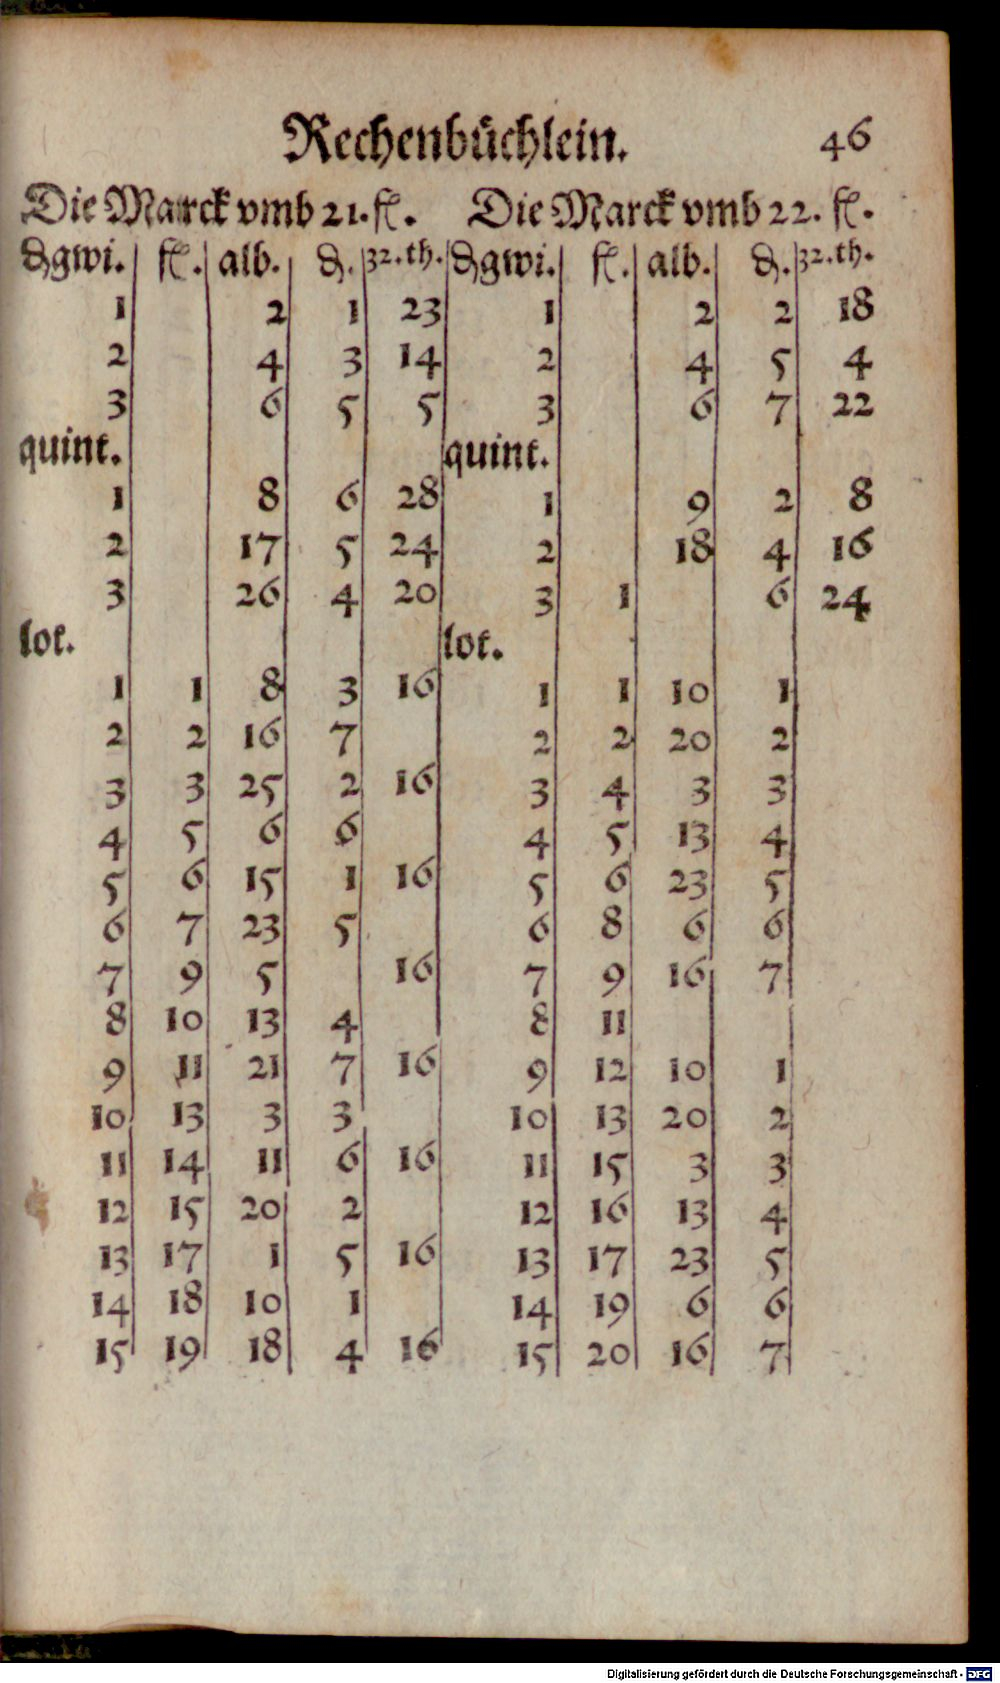 Rechenbüchlein. 46
Die Marck vmb 21. fl. Die Marck vmb 22. fl.
₰gwi. fl. alb. ₰. 32.th. ₰gwi. fl. alb. ₰. 32.th.
1 2 1 23 1 2 2 18
2 4 3 14 2 4 5 4
3 6 5 5 3 6 7 22
quint. quint.
1 8 6 28 1 9 2 8
2 17 5 24 2 18 4 16
3 26 4 20 3 1 6 24
lot. lot.
1 1 8 3 16 1 1 10 1
2 2 16 7 2 2 20 2
3 3 25 2 16 3 4 3 3
4 5 6 6 4 5 13 4
5 6 15 1 16 5 6 23 5
6 7 23 5 6 8 6 6
7 9 5 16 7 9 16 7
8 10 13 4 8 11
9 11 21 7 16 9 12 10 1
10 13 3 3 10 13 20 2
11 14 11 6 16 11 15 3 3
12 15 20 2 12 16 13 4
13 17 1 5 16 13 17 23 5
14 18 10 1 14 19 6 6
15 19 18 4 16 15 20 16 7
Digitalisierung gefördert durch die Deutsche Forschungsgemeinschaft - DFG